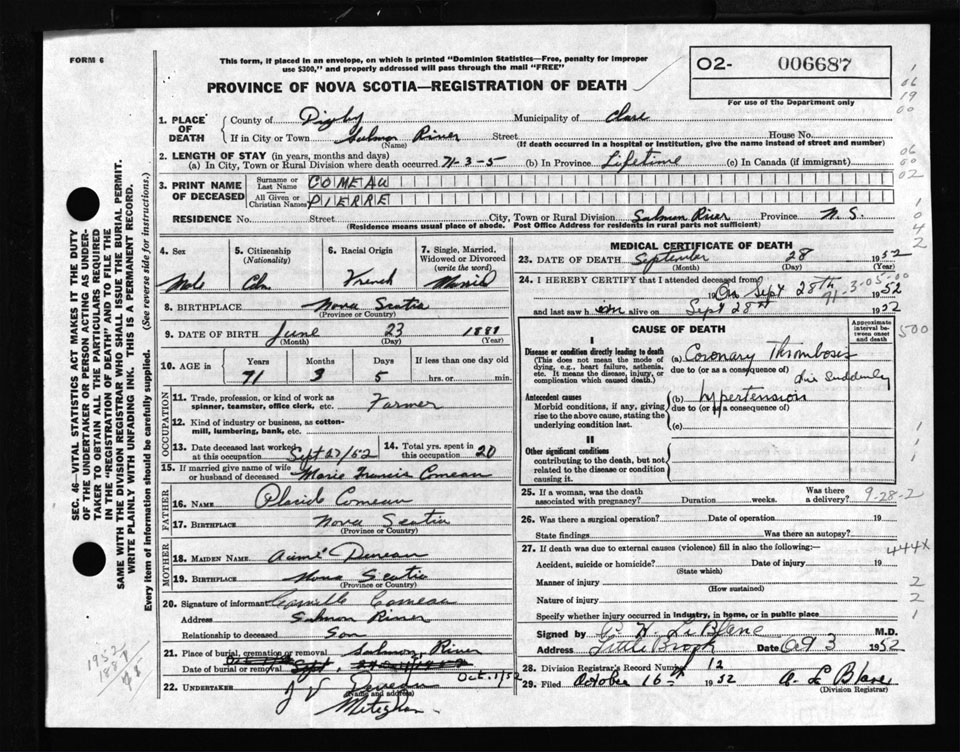 FORM 6
This form, if placed in an envelope, on which is printed "Dominion Statistics—Free, penalty for improper
use $300," and properly addressed will pass through the mail "FREE"
O2- 006687
For use of the Department only
PROVINCE OF NOVA SCOTIA—REGISTRATION OF DEATH
1. PLACE OF DEATH
County of Digby Municipality of Clare
If in City or Town Salmon River Street House No.
(Name) (If death occurred in a hospital or institution, give the name instead of street and number)
2. LENGTH OF STAY (in years, months and days)
(a) In City, Town or Rural Division where death occurred 71-3-5 (b) In Province Lifetime (c) In Canada (if immigrant)
3. PRINT NAME OF DECEASED
Surname or Last Name COMEAU
All Given or Christian Names PIERRE
RESIDENCE No. Street City, Town or Rural Division Salmon River Province N.S.
(Residence means usual place of abode. Post Office Address for residents in rural parts not sufficient)
4. Sex Male
5. Citizenship (Nationality) Cdn
6. Racial Origin French
7. Single, Married, Widowed or Divorced (write the word) Married
8. BIRTHPLACE Nova Scotia
(Province or Country)
9. DATE OF BIRTH June 23 1881
(Month) (Day) (Year)
10. AGE in Years Months Days If less than one day old
71 3 5 hrs. or min.
OCCUPATION
11. Trade, profession, or kind of work as spinner, teamster, office clerk, etc. Farmer
12. Kind of industry or business, as cotton-mill, lumbering, bank, etc.
13. Date deceased last worked at this occupation Sept 27/52
14. Total yrs. spent in this occupation 20
15. If married give name of wife or husband of deceased Marie Francis Comeau
FATHER
16. NAME Placide Comeau
17. BIRTHPLACE Nova Scotia
(Province or Country)
MOTHER
18. MAIDEN NAME Aimé Deveau
19. BIRTHPLACE Nova Scotia
(Province or Country)
20. Signature of informant Camille Comeau
Address Salmon River
Relationship to deceased Son
21. Place of burial, cremation or removal Salmon River
Date of burial or removal Oct. 1/52
22. UNDERTAKER J V Deveau
(Name and address)
Meteghan
MEDICAL CERTIFICATE OF DEATH
23. DATE OF DEATH September 28 1952
(Month) (Day) (Year)
24. I HEREBY CERTIFY that I attended deceased from
19 On Sept 28th 1952
71-3-05
and last saw h em alive on Sept 28th 1952
CAUSE OF DEATH
Approximate interval between onset and death
I
Disease or condition directly leading to death
(This does not mean the mode of dying, e.g., heart failure, asthenia, etc. It means the disease, injury, or complication which caused death.
(a) Coronary Thrombosis
due to (or as a consequence of) Die Suddenly
Antecedent causes
Morbid conditions, if any, giving rise to the above cause, stating the underlying condition last.
(b) hypertension
due to (or as a consequence of)
(c)
II
Other significant conditions
contributing to the death, but not related to the disease or condition causing it.
25. If a woman, was the death associated with pregnancy? Duration weeks. Was there a delivery?
9-28-2
26. Was there a surgical operation? Date of operation 19
State findings Was there an autopsy?
27. If death was due to external causes (violence) fill in also the following:—
444X
Accident, suicide or homicide? Date of injury 19
(State which)
Manner of injury
(How sustained)
Nature of injury
Specify whether injury occurred in industry, in home, or in public place
Signed by P. H. LeBlanc M.D.
Address Little Brook Date Oct 3 1952
28. Division Registrar's Record Number 12
29. Filed October 16th 1952 A. L Blanc
(Division Registrar)
SEC. 46—VITAL STATISTICS ACT MAKES IT THE DUTY
OF THE UNDERTAKER OR PERSON ACTING AS UNDER-
TAKER TO OBTAIN ALL THE PARTICULARS REQUIRED
IN THE "REGISTRATION OF DEATH" AND TO FILE THE
SAME WITH THE DIVISION REGISTRAR WHO SHALL ISSUE THE BURIAL PERMIT.
WRITE PLAINLY WITH UNFADING INK. THIS IS A PERMANENT RECORD.
Every item of information should be carefully supplied. (See reverse side for instructions.)
1952
1881
06
19
00
06
00
02
1042
500
1
1
1
2
2
1